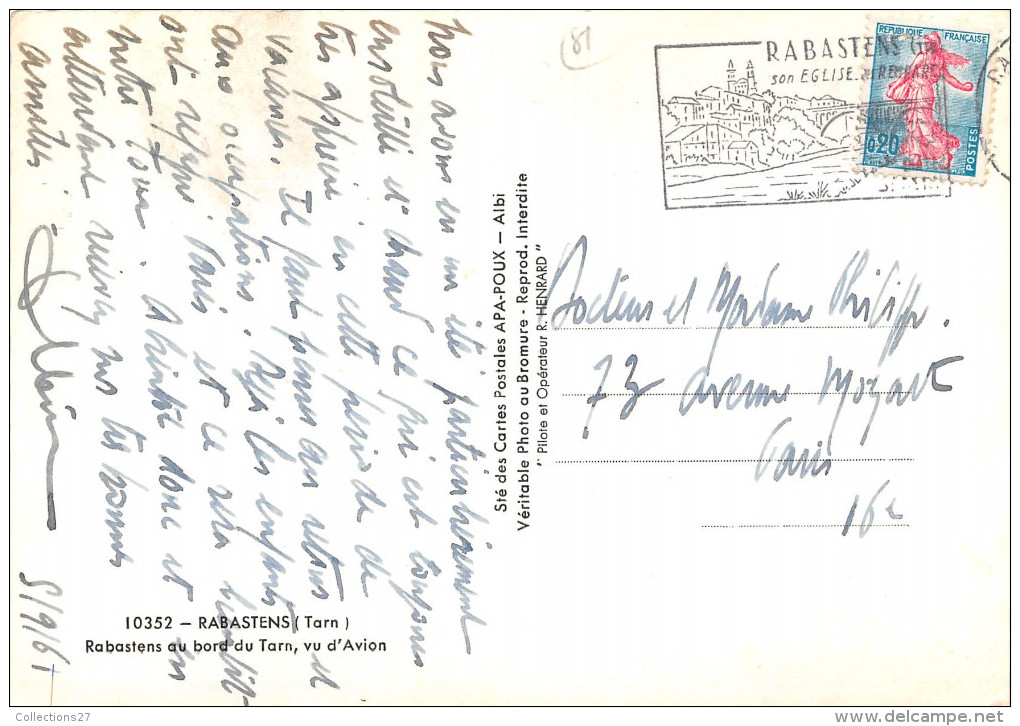 Nous avons eu un été particulièrement
ensoleillé et chaud ce qui est toujours
très apprécié en cette période de
vacances. Il faut penser au retour et
aux occupations. Déjà les enfants
ont Paris et ce sera
notre tour. A bientôt donc et en
attendant nos très bonnes
amitiés
5/9/61
10352 – RABASTENS (Tarn)
Rabastens au bord du Tarn, vu d'Avion
Sté des Cartes Postales APA-POUX – Albi
Véritable Photo au Bromure - Reprod. Interdite
" Pilote et Opérateur R. HENRARD "
81
RABASTENS (Tarn)
son EGLISE, ses REMPARTS
REPUBLIQUE FRANÇAISE
0,20
POSTES
Docteur et Madame Philippe.
73 avenue Mozart
Paris
16e
Collections27
www.delcampe.net